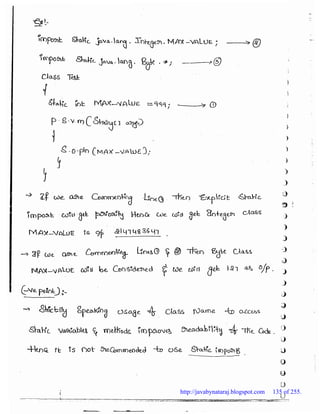 Ex:-
import static java.lang.Integer.MAX-VALUE; → ②
import static java.lang.Byte.*; → ③
class Test
{
static int MAX-VALUE = 999; → ①
P.S.V.m(String[] args)
{
S.o.pln(MAX-VALUE);
}
}
→ If we are Commenting Line① Then Explicit static
import will get priority Hence we will get Integer class
MAX-VALUE is o/p 2147483647
→ If we are Commenting Lines① & ② Then Byte Class
MAX-VALUE will be Considered & we will get 127 as o/p.
(-ve point):-
→ Strictly Speaking usage of class name to access
static variables & methods improves readability of the Code.
Hence it is not recommended to use static imports.
http://javabynataraj.blogspot.com 135 of 255.